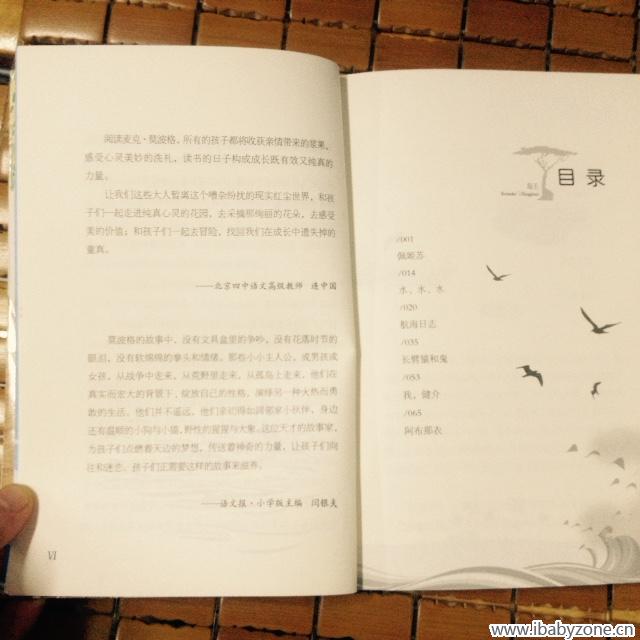 阅读麦克·莫波格，所有的孩子都将收获亲情带来的浆果，
感受心灵美妙的洗礼，读书的日子构成成长既有效又纯真的
力量。
让我们这些大人暂离这个嘈杂纷扰的现实红尘世界，和孩
子们一起走进纯真心灵的花园，去采摘那绚丽的花朵，去感受
美的价值；和孩子们一起去冒险，找回我们在成长中遗失掉的
童真。
——北京四中语文高级教师 连中国
莫波格的故事中，没有文具盒里的争吵，没有花落时节的
眼泪，没有软绵绵的拳头和情绪，那些小小主人公，或男孩或
女孩，从战争中走来，从荒野里走来，从孤岛上走来，他们在
真实而宏大的背景下，绽放自己的性格，演绎另一种火热而勇
敢的生活。他们并不遥远，他们亲切得如同邻家小伙伴，身边
还有温顺的小狗与小猫，野性的猩猩与大象。这位天才的故事家，
为孩子们点燃着天边的梦想，传送着神奇的力量，让孩子们向
往和迷恋。孩子们正需要这样的故事来滋养。
——语文报·小学版主编 闫银夫
VI
岛王
Kensuke's Kingdom
目录
/001
佩姬苏
/014
水，水，水
/020
航海日志
/035
长臂猿和鬼
/053
我，健介
/065
阿布那衣
www.lbabyzone.cn